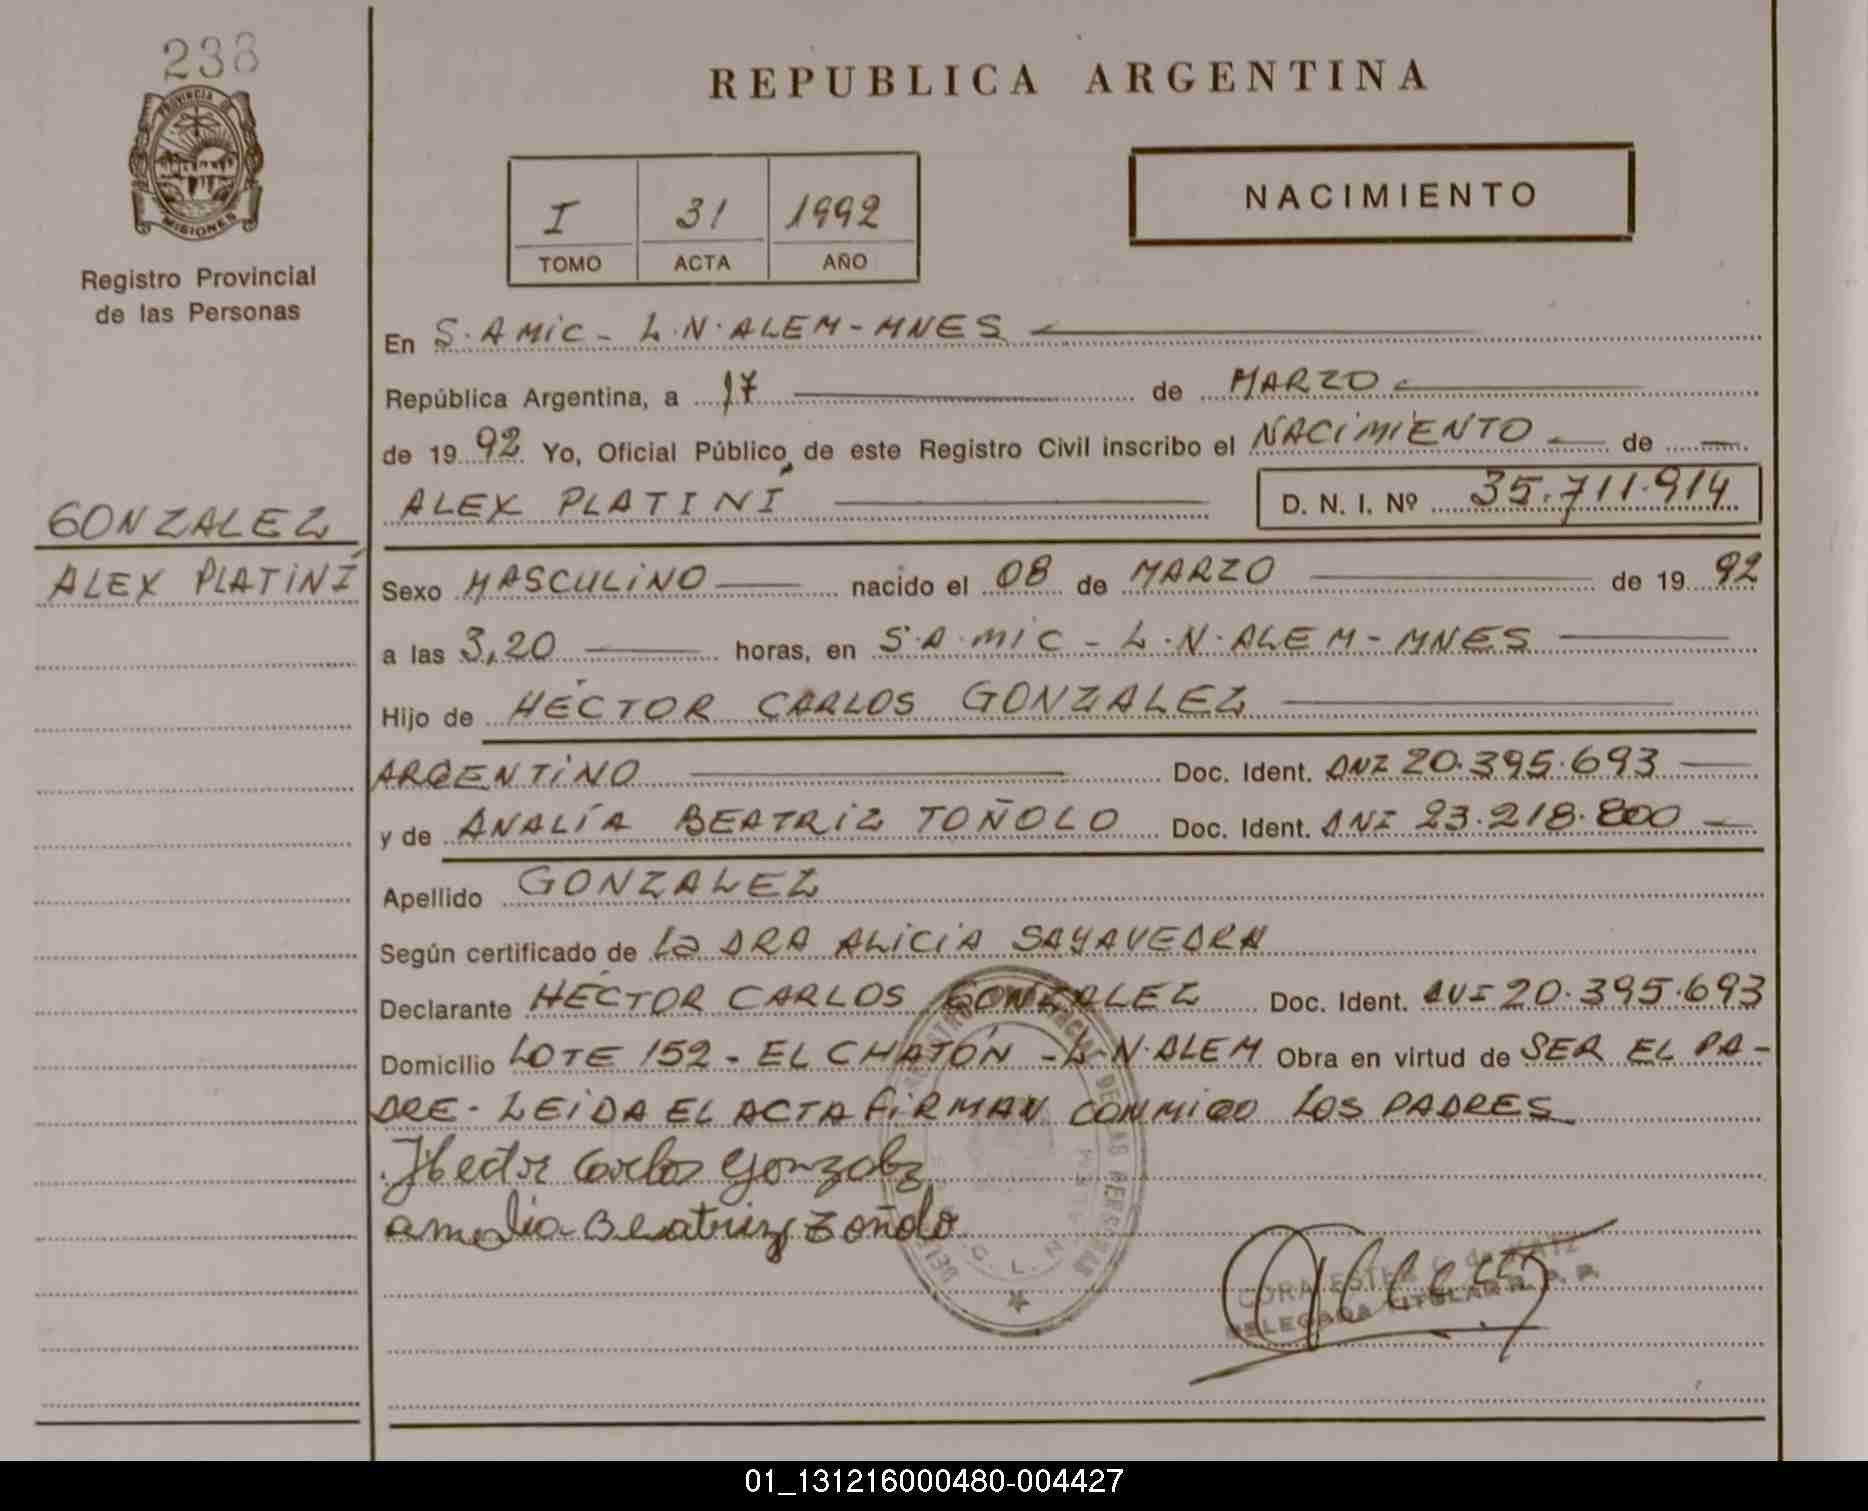 238
PROVINCIA DE
MISIONES
Registro Provincial
de las Personas
REPUBLICA ARGENTINA
I 31 1992
TOMO ACTA AÑO
NACIMIENTO
En S.A MIC - L.N.ALEM-MNES
República Argentina, a 17 de MARZO
de 19 92 Yo, Oficial Público, de este Registro Civil inscribo el NACIMIENTO de
ALEX PLATINÍ D. N. I. Nº 35.711.914
GONZALEZ
ALEX PLATINÍ
Sexo MASCULINO nacido el 08 de MARZO de 19 92
a las 3,20 horas, en S.A.MIC - L.N.ALEM-MNES
Hijo de HÉCTOR CARLOS GONZALEZ
ARGENTINO Doc. Ident. DNI 20.395.693
y de ANALÍA BEATRIZ TOÑOLO Doc. Ident. DNI 23.218.800
Apellido GONZALEZ
Según certificado de La DRA ALICIA SAYAVEDRA
Declarante HÉCTOR CARLOS GONZALEZ Doc. Ident. DNI 20.395.693
Domicilio LOTE 152 - EL CHATÓN - L-N.ALEM Obra en virtud de SER EL PA-
DRE - LEIDA EL ACTA FIRMAN CONMIGO LOS PADRES
Hector Carlos Gonzalez
Analia Beatriz Toñolo
DE LAS PERSONAS
G. L. N. ALEM
CORA ESTER C. de KATZ
DELEGADA TITULAR R. P. P.
01_131216000480-004427